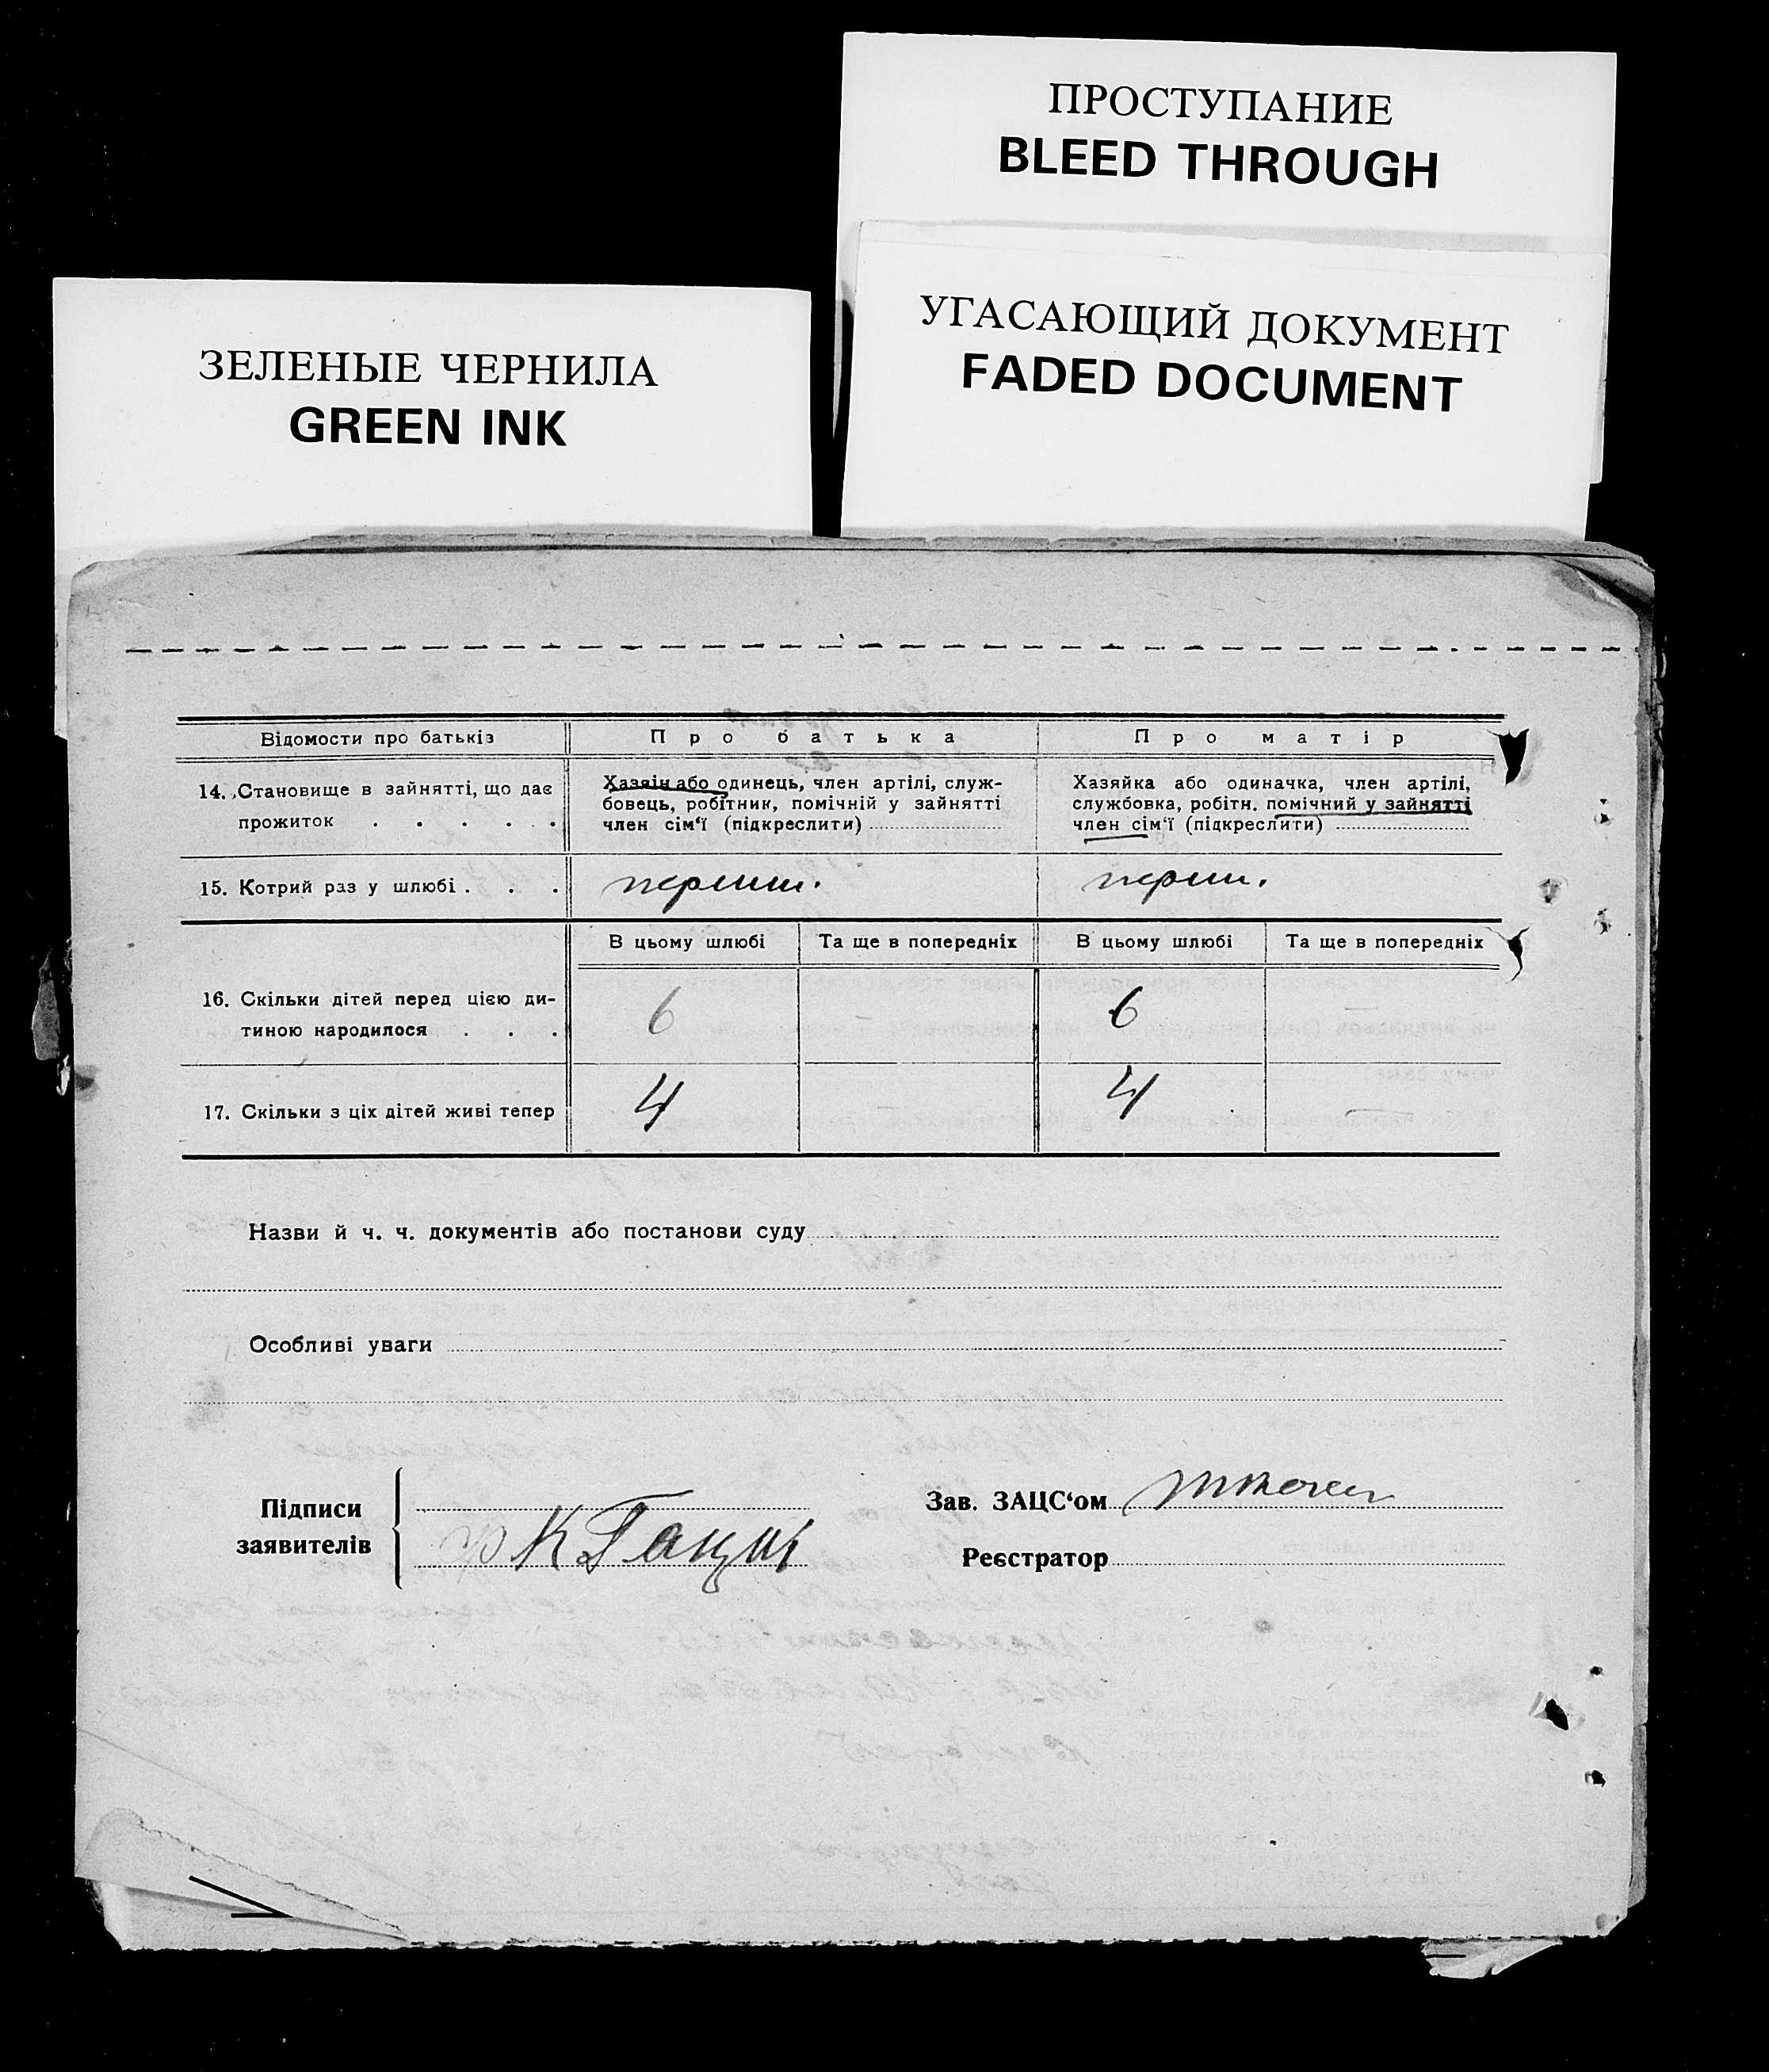 ПРОСТУПАНИЕ
BLEED THROUGH
УГАСАЮЩИЙ ДОКУМЕНТ
FADED DOCUMENT
ЗЕЛЕНЫЕ ЧЕРНИЛА
GREEN INK
Відомости про батьків
Про батька
Про матір
14. Становище в зайнятті, що дає
прожиток . . . . .
Хазяін або одинець, член артілі, служ-
бовець, робітник, помічній у зайнятті
член сім'ї (підкреслити)
Хазяйка або одиначка, член артілі,
службовка, робітн. помічний у зайнятті
член сім'ї (підкреслити)
15. Котрий раз у шлюбі . . .
перший.
перш.
В цьому шлюбі
Та ще в попередніх
В цьому шлюбі
Та ще в попередніх
16. Скільки дітей перед цією ди-
тиною народилося . . .
6
—
6
—
17. Скільки з ціх дітей живі тепер
4
—
4
—
Назви й ч. ч. документів або постанови суду
Особливі уваги
Підписи
заявителів
Зав. ЗАЦС'ом
Реєстратор